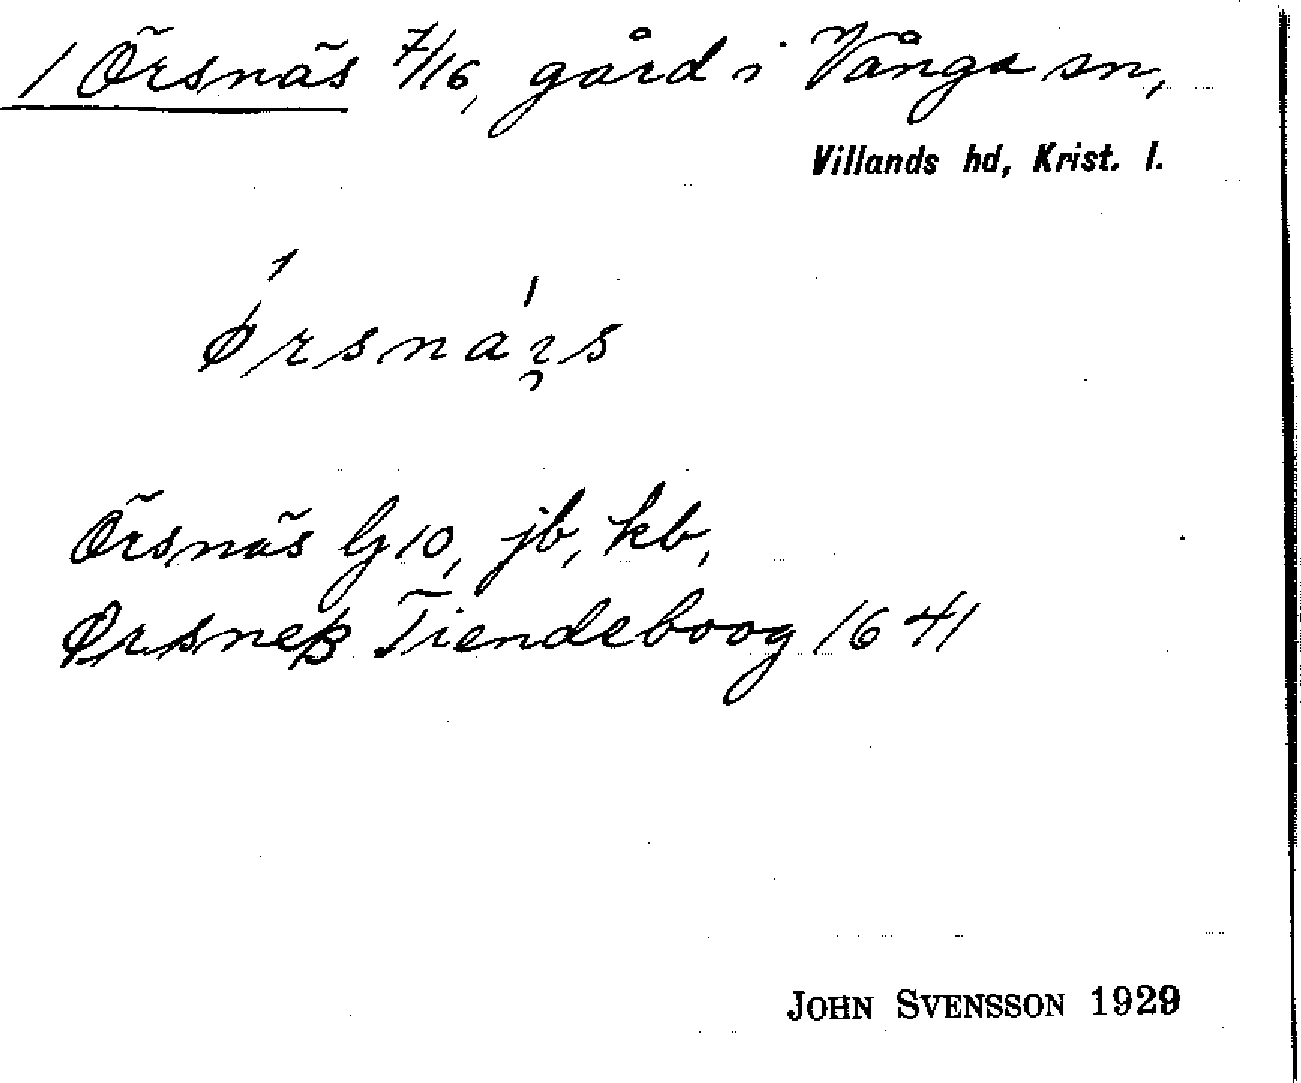 1 Örsnäs 7/16, gård i Vånga sn,
Villands hd, Krist. l.
Örsnäs G10, jb, kb,
Ørsneß Tiendeboog 1641
JOHN SVENSSON 1929